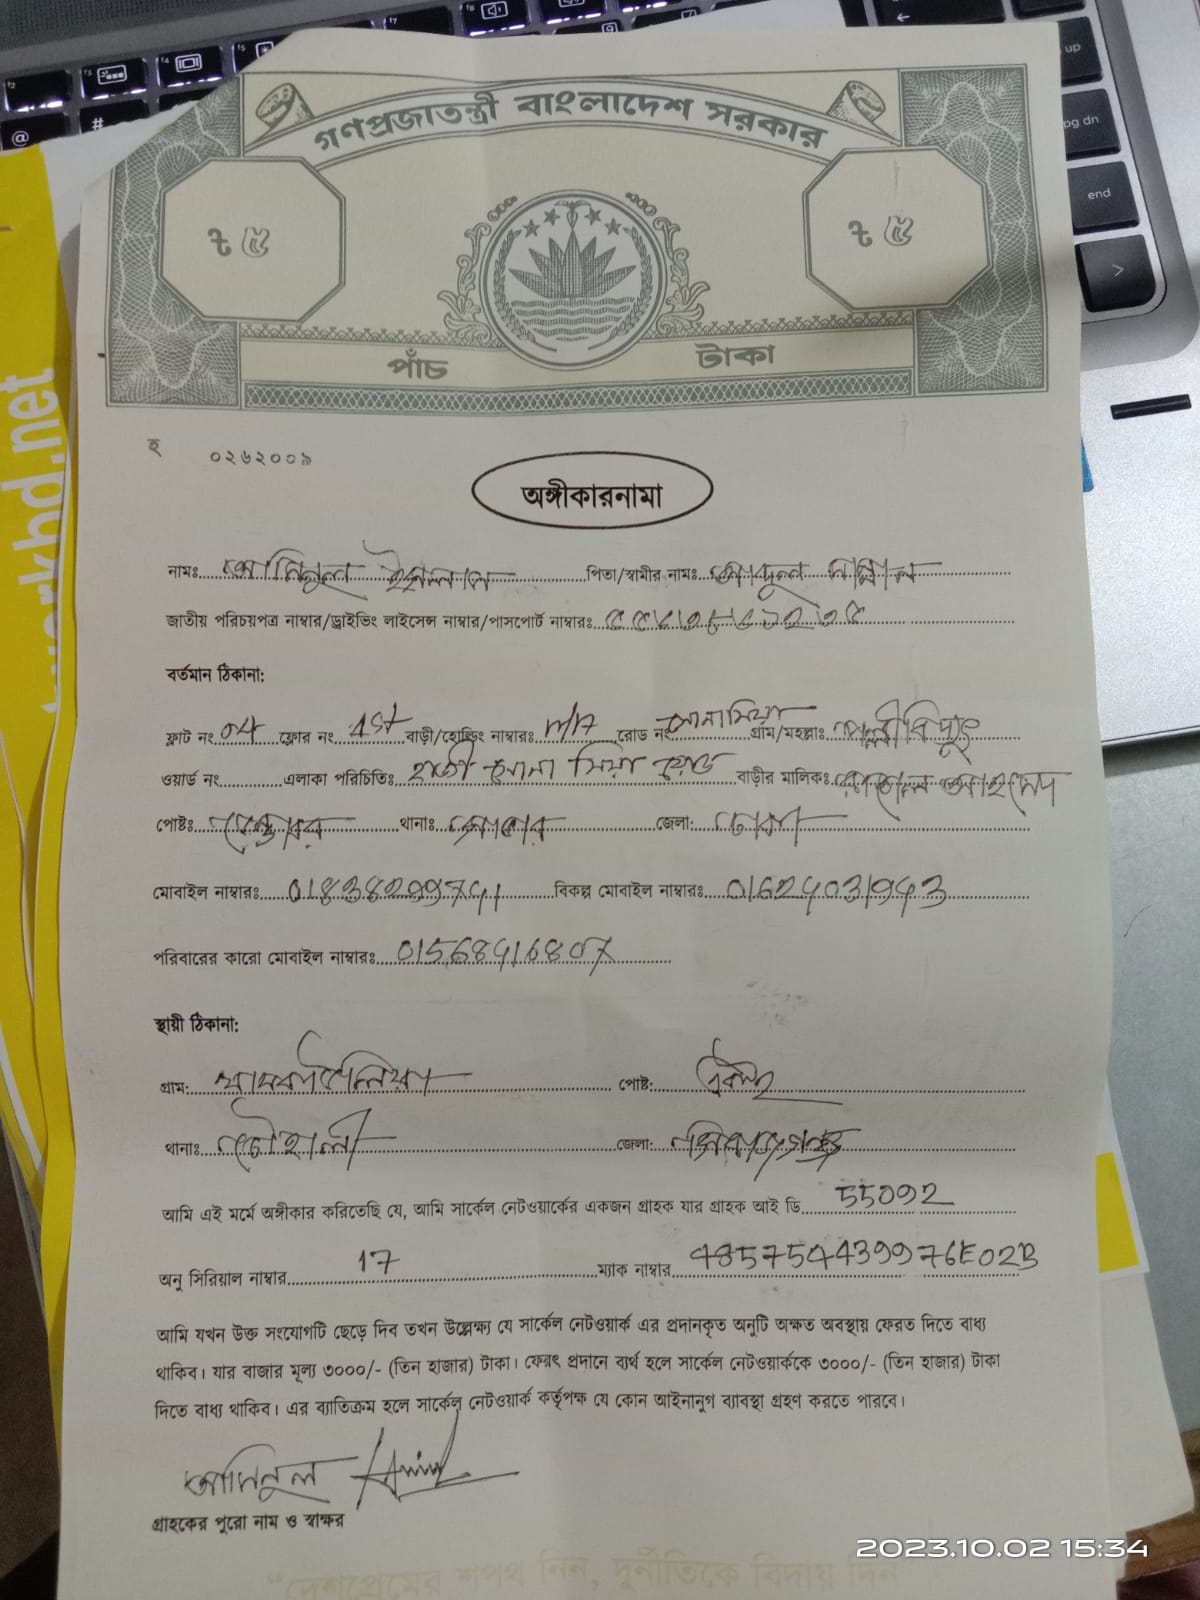 গণপ্রজাতন্ত্রী বাংলাদেশ সরকার
৳ ৫ ৳ ৫
পাঁচ টাকা
হ ০২৬২০০৯
অঙ্গীকারনামা
নামঃ আমিনুল ইসলাম পিতা/স্বামীর নামঃ আব্দুল মান্নান
জাতীয় পরিচয়পত্র নাম্বার/ড্রাইভিং লাইসেন্স নাম্বার/পাসপোর্ট নাম্বারঃ
বর্তমান ঠিকানা:
ফ্লাট নং 04 ফ্লোর নং 1st বাড়ী/হোল্ডিং নাম্বারঃ N/A রোড নং সোনামিয়া গ্রাম/মহল্লাঃ পল্লীবিদ্যুৎ
ওয়ার্ড নং এলাকা পরিচিতিঃ হাজী সোনা মিয়া রোড বাড়ীর মালিকঃ আহমেদ
পোষ্টঃ থানাঃ সাভার জেলা: ঢাকা
মোবাইল নাম্বারঃ বিকল্প মোবাইল নাম্বারঃ
পরিবারের কারো মোবাইল নাম্বারঃ
স্থায়ী ঠিকানা:
গ্রাম: পোষ্ট:
থানাঃ চৌহালী জেলা: সিরাজগঞ্জ
আমি এই মর্মে অঙ্গীকার করিতেছি যে, আমি সার্কেল নেটওয়ার্কের একজন গ্রাহক যার গ্রাহক আই ডি 55092
অনু সিরিয়াল নাম্বার 17 ম্যাক নাম্বার 485754439976E02B
আমি যখন উক্ত সংযোগটি ছেড়ে দিব তখন উল্লেক্ষ্য যে সার্কেল নেটওয়ার্ক এর প্রদানকৃত অনুটি অক্ষত অবস্থায় ফেরত দিতে বাধ্য
থাকিব। যার বাজার মূল্য ৩০০০/- (তিন হাজার) টাকা। ফেরৎ প্রদানে ব্যর্থ হলে সার্কেল নেটওয়ার্ককে ৩০০০/- (তিন হাজার) টাকা
দিতে বাধ্য থাকিব। এর ব্যাতিক্রম হলে সার্কেল নেটওয়ার্ক কর্তৃপক্ষ যে কোন আইনানুগ ব্যাবস্থা গ্রহণ করতে পারবে।
আমিনুল
গ্রাহকের পুরো নাম ও স্বাক্ষর
"দেশপ্রেমের শপথ নিন, দুর্নীতিকে বিদায় দিন"
2023.10.02 15:34
workhd.net
up
pg dn
end